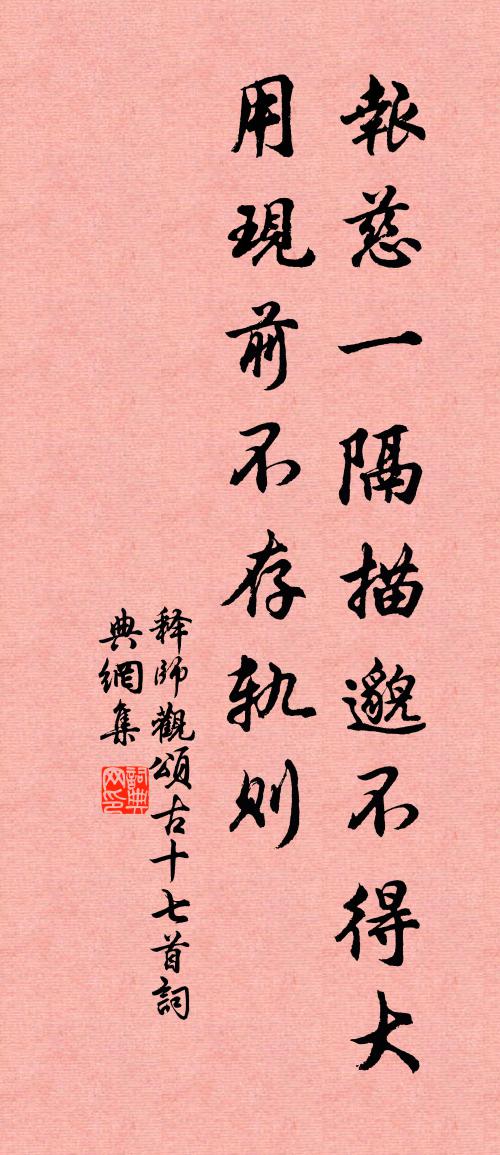 報慈一隔描邈不得大
用現前不存軌則
释師觀頌古十七首詞
典網集
詞典网印